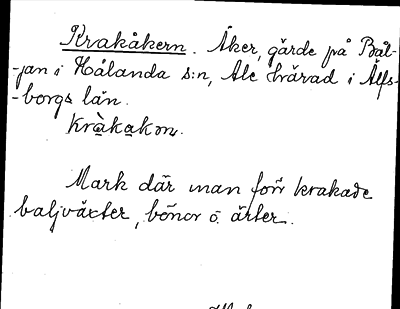 Krakåkern. Åker, gärde på Bål-
-jan i Hålanda s:n, Ale härad i Älfs-
-borgs län.
kràkakɷn.
Mark där man förr krakade
baljväxter, bönor o. ärter.